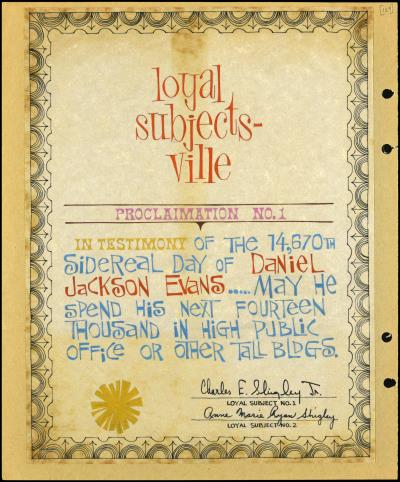 loyal
subjects-
ville
PROCLAIMATION NO.1
IN TESTIMONY OF THE 14,670TH
SIDEREAL DAY OF DANIEL
JACKSON EVANS..... MAY HE
SPEND HIS NEXT FOURTEEN
THOUSAND IN HIGH PUBLIC
OFFICE OR OTHER TALL BLDGS.
Charles E. Shigley Jr.
LOYAL SUBJECT NO.1
Anne Marie Ryan Shigley
LOYAL SUBJECT NO.2